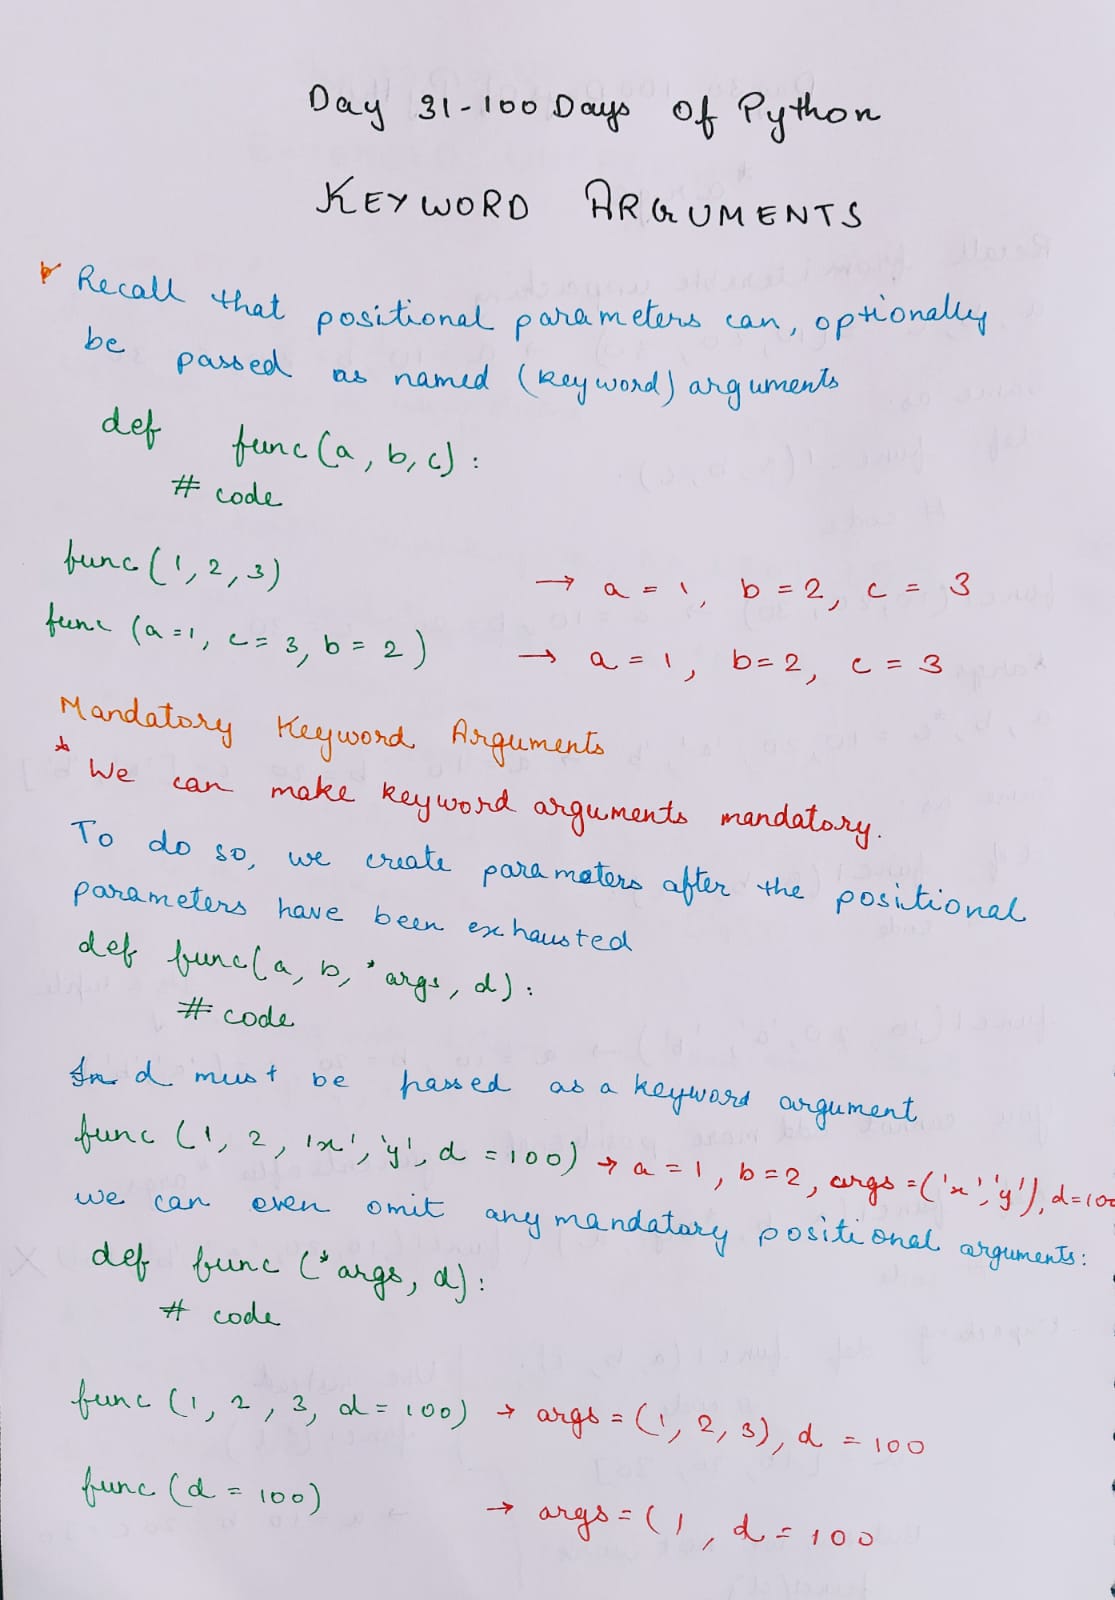 Day 31-100 Days of Python
KEYWORD ARGUMENTS
Recall that positional parameters can, optionally
be passed as named (keyword) arguments
def func(a, b, c):
# code
func(1, 2, 3) → a = 1, b = 2, c = 3
func (a=1, c = 3, b = 2) → a = 1, b = 2, c = 3
Mandatory Keyword Arguments
* We can make keyword arguments mandatory.
To do so, we create parameters after the positional
parameters have been exhausted
def func(a, b, *args, d):
# code
d must be passed as a keyword argument
func (1, 2, 'x', 'y', d = 100) → a = 1, b = 2, args = ('x', 'y'), d = 100
we can even omit any mandatory positional arguments:
def func (*args, d):
# code
func (1, 2, 3, d = 100) → args = (1, 2, 3), d = 100
func (d = 100) → args = (), d = 100